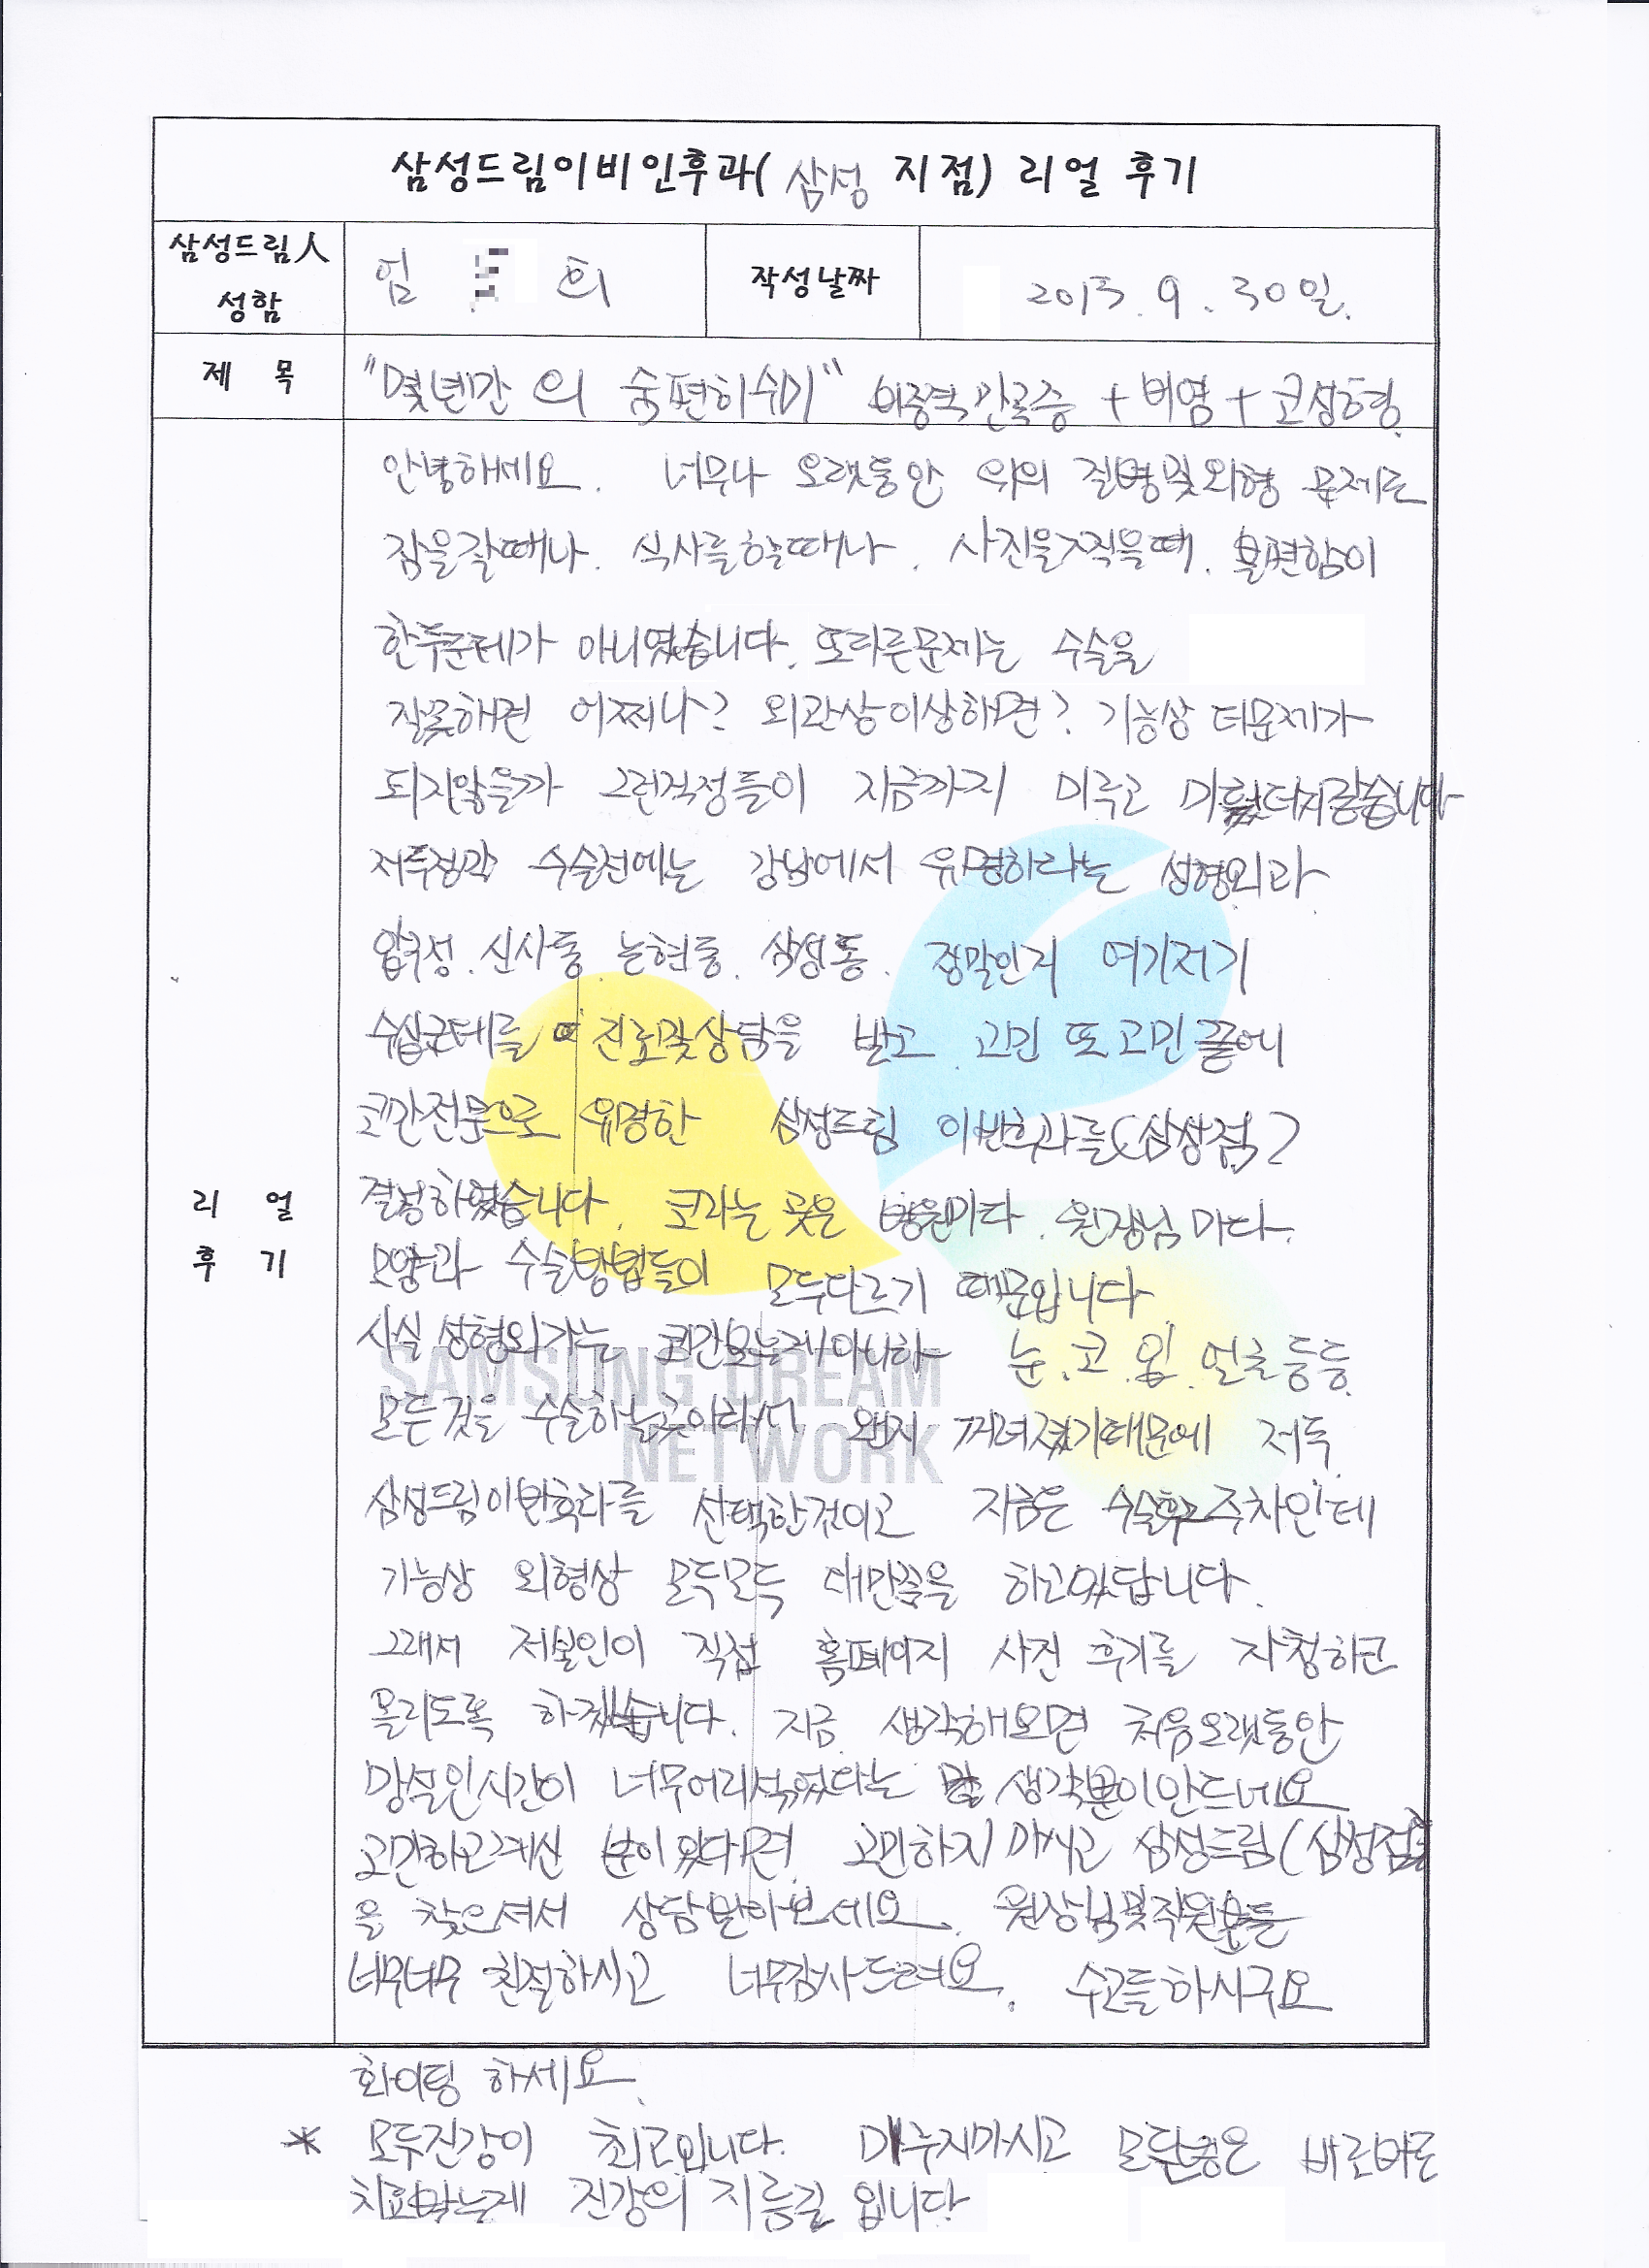 삼성드림이비인후과( 삼성 지점) 리얼 후기
삼성드림人
성함
임 희
작성날짜
2013. 9. 30일.
제 목
"몇년간 의 숨편히쉬기" 비중격만곡증 + 비염 + 코성형
안녕하세요. 너무나 오랫동안 위의 질병및외형 문제로
잠을잘때나. 식사를할때나. 사진을찍을때. 불편함이
한두군데가 아니였습니다. 또다른문제는 수술을
잘못해면 어쩌나? 외관상이상해면? 기능상 더문제가
되지않을까 그런걱정들이 지금까지 미루고
저두정각 수술전에는 강남에서 유명하라는 성형외과
압구정. 신사동. 논현동. 삼성동. 정말인지 여기저기
수십군데를 진료및상담을 받고 고민 또 고민 끝에
코만전문으로 유명한 삼성드림 이빈후과를(삼성점)
결정하였습니다. 코라는 곳은 병원마다. 원장님 마다.
모양과 수술방법들이 모두다르기 때문입니다
사실 성형외가는 코만보는게아니라 눈.코.입.얼굴등등
모든것을 수술하는곳이라서 왠지 꺼녀졌기때문에 저두
삼성드림이빈후과를 선택한것이고 지금은 수술후2주차인데
기능상 외형상 모두모두 대만족을 하고있답니다.
그래서 저본인이 직접 홈페이지 사진 후기를 자청하고
올리도록 하겠습니다. 지금 생각해보면 처음오랫동안
망설인시간이 너무어리석었다는 생각뿐이안드네요
고민하고계신 분이 있다면 고민하지 마시고 삼성드림(삼성점)
을 찾으셔서 상담받아보세요. 원장님및직원분들
너무너무 친절하시고 너무감사드려요. 수고들하시구요
화이팅 하세요.
* 모두건강이 최고입니다. 미루지마시고 모든 바로바로
치료받는게 건강의 지름길 입니다
리 얼
후 기
SAMSUNG DREAM
NETWORK